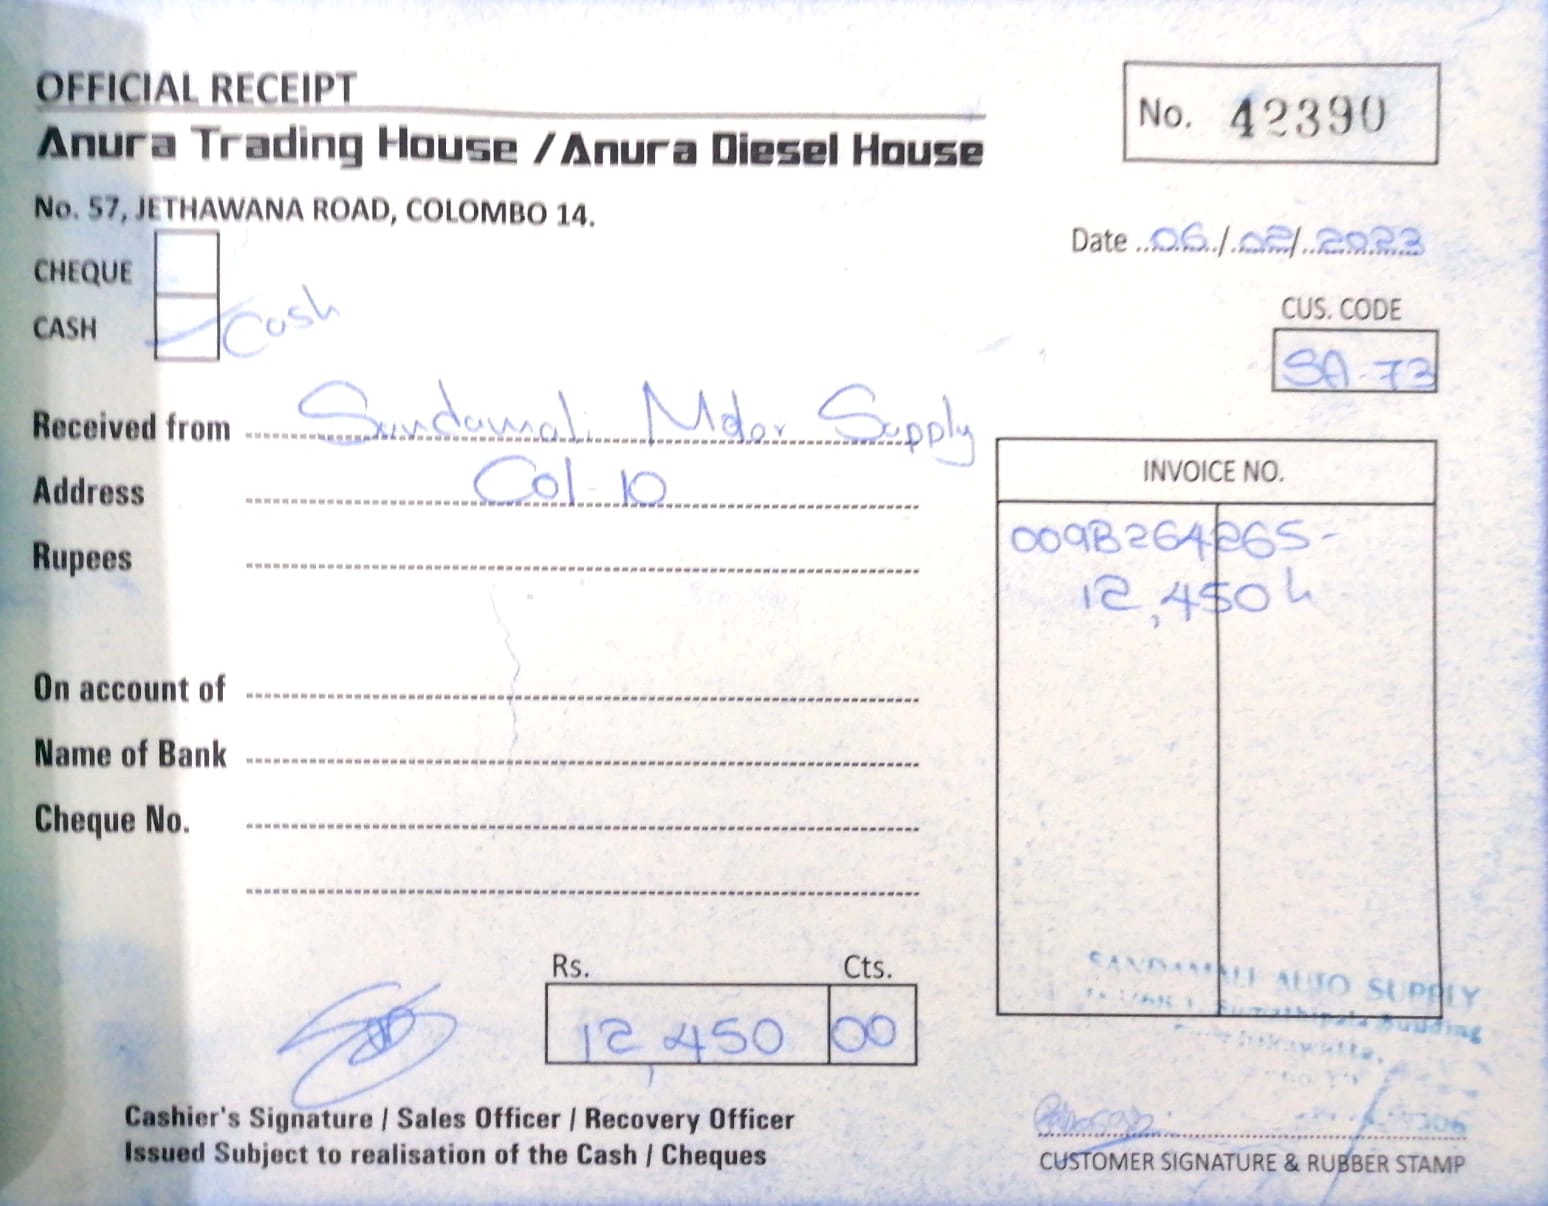 OFFICIAL RECEIPT
No. 42390
Anura Trading House / Anura Diesel House
No. 57, JETHAWANA ROAD, COLOMBO 14.
Date 06/02/2023
CHEQUE
CASH Cash
CUS. CODE
SA-73
Received from Sandamali Motor Supply
Address Col-10
Rupees
INVOICE NO.
009B264265-
12,450
On account of
Name of Bank
Cheque No.
Rs. Cts.
12,450 00
SANDAMALI AUTO SUPPLY
Building
Cashier's Signature / Sales Officer / Recovery Officer
Issued Subject to realisation of the Cash / Cheques
CUSTOMER SIGNATURE & RUBBER STAMP